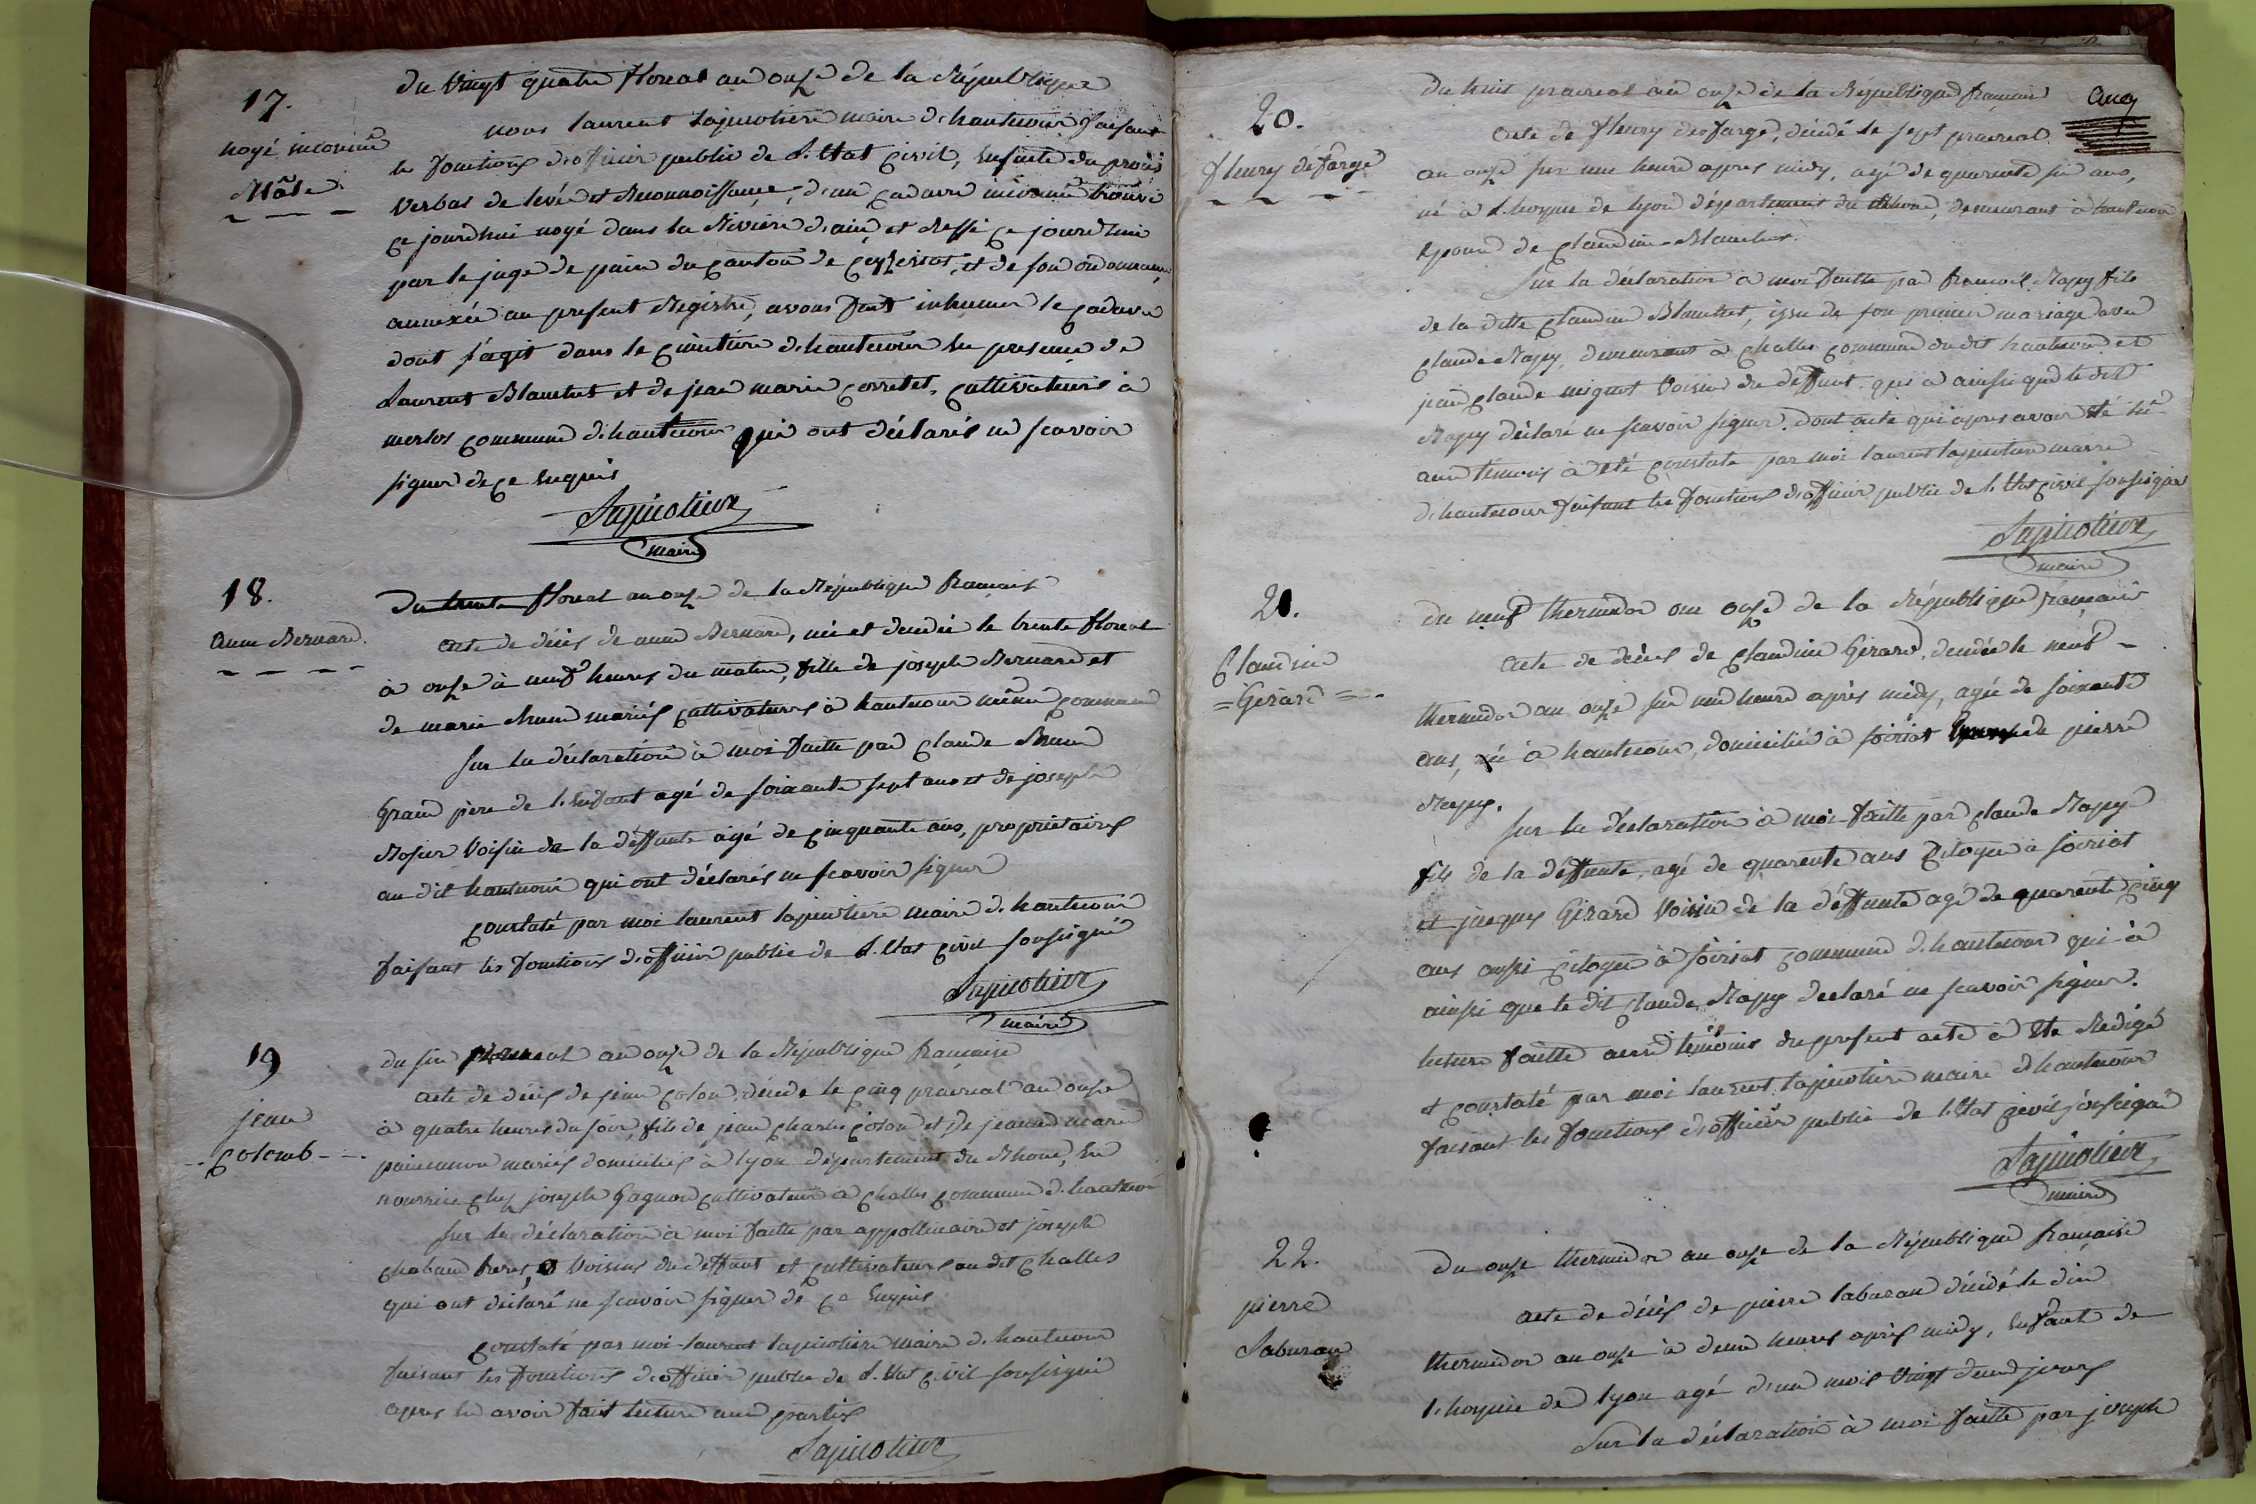 17.
noyé inconnu
Mâle
du vingt quatre floreal an onze de la République
nous laurent lapicotiere maire d'hautecour faisant
les fonctions d'officier public de l'Etat Civil, ensuite du procès
verbal de levée et Reconnoissance, d'un Cadavre inconnu trouvé
Ce jourd'hui noyé dans la Riviere d'ain, et dressé Ce jourd'hui
par le juge de paix du Canton de Ceyzeriat, et de son ordonnance
annexée au present Régistre, avons fait inhumer le Cadavre
dont s'agit dans le Cimetiere d'hautecour En presence de
Laurent Blanchet et de jean marie Corretet, Cultivateurs à
merlos Commune d'hautecour qui ont déclarés ne scavoir
signer de Ce Enquis
Lapicotiere
maire
18.
Anne Bernard.
Du trente floreal an onze de la République française
Acte de décès de anne Bernard, née et decedée le trente floreal
à onze à neuf heures du matin, fille de joseph Bernard et
de marie Brun mariés Cultivateurs à hautecour même Commune
Sur la déclaration à moi faitte par Claude Brun
Grand père de l'Enfant agé de soixante sept ans et de joseph
Rosier voisin de la déffunte agé de Cinquante ans, propriétaires
au dit hautecour qui ont déclarés ne scavoir signer
Constaté par moi laurent lapicotiere maire d'hautecour
faisant les fonctions d'officier public de l'Etat Civil soussigné
Lapicotiere
maire
19
jean
Colomb
du six prairial an onze de la République française
Acte de décès de jean Colon, décédé le Cinq prairial an onze
à quatre heures du soir, fils de jean Charles Colon et de jeanne marie
mariés domiciliés à lyon département du Rhone, En
nourrice chez joseph Gagnon Cultivateur à Challes Commune d'hautecour
Sur la déclaration à moi faitte par appollinaire et joseph
Chaband freres, voisins du déffunt et Cultivateurs au dit Challes
qui ont déclaré ne scavoir signer de Ce Enquis
Constaté par moi laurent lapicotiere maire d'hautecour
faisant les fonctions d'officier public de l'Etat Civil soussigné
apres En avoir fait lecture aux parties
Lapicotiere
20.
fleury défarge
Du huit prairial an onze de la République française
Acte de fleury desfarge, décédé le sept prairial
an onze sur une heure apres midy, agé de quarante six ans,
né à l'hospice de lyon département du Rhone, demeurant à hautecour
Epoux de Claudine Blanchet.
Sur la declaration à moi faitte par françois Rapy fils
de la ditte Claudine Blanchet, issu de son premier mariage avec
Claude Rapy, demeurant à Challes Commune du dit hautecour et
jean Claude mignot voisin du déffunt qui a ainsi que le dit
Rapy déclaré ne scavoir signer. dont acte qui apres avoir été lû
aux témoins à été Constaté par moi laurent lapicotiere maire
d'hautecour faisant les fonctions d'officier public de l'Etat Civil soussigné
Lapicotiere
maire
21.
Claudine
Gérard
du neuf thermidor an onze de la République française
Acte de décès de Claudine Gérard, decedée le neuf
thermidor an onze sur une heure après midy, agée de soixante
ans, née à hautecour, domiciliée à soiriat de pierre
Rapy.
Sur la déclaration à moi faitte par Claude Rapy
fils de la déffunte, agé de quarente ans Citoyen à soiriat
et jacques Gérard voisin de la déffunte agé de quarente Cinq
ans aussi Citoyen à soiriat Commune d'hautecour qui à
ainsi que le dit Claude Rapy declaré ne scavoir signer.
lecture faitte aux témoins du present acte à Eté Redigé
et Constaté par moi laurent lapicotiere maire d'hautecour
faisant les fonctions d'officier public de l'Etat Civil soussigné
Lapicotiere
maire
22.
pierre
Laburan
Du onze thermidor an onze de la République française
Acte de décès de pierre laburan décédé le dix
thermidor an onze à deux heures après midy, Enfant de
l'hospice de lyon agé d'un mois vingt deux jours
Sur la déclaration à moi faitte par joseph